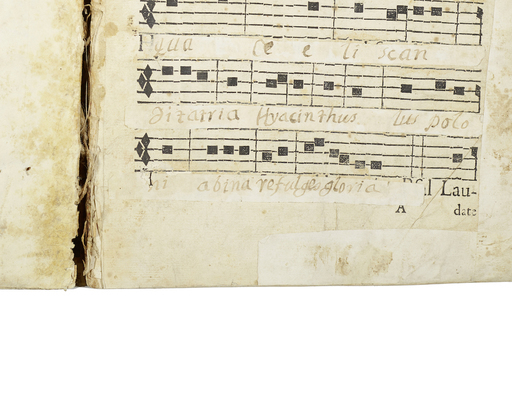 qua cæ e li scan
dit atria Hyacinthus lus polo
ni abina refulge gloria Psal Lau-
A date